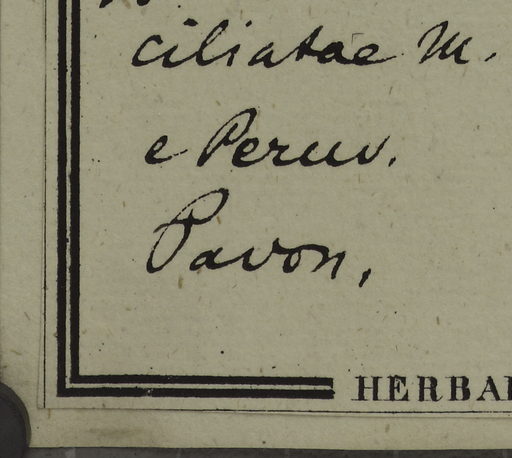 ciliatae M.
e Peruv.
Pavon,
HERBA